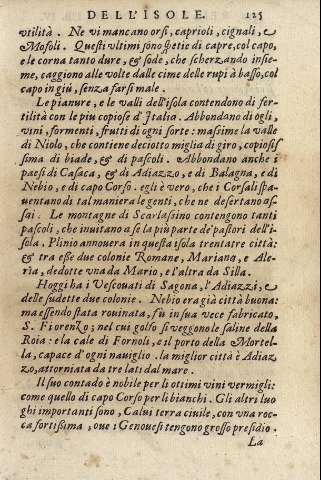 DELL'ISOLE. 125
vtilità. Ne vi mancano orsi, caprioli, cignali, e
Mofoli. Questi vltimi sono spetie di capre, col capo,
e le corna tanto dure, & sode, che scherzando insie-
me, caggiono alle volte dalle cime delle rupi à basso, col
capo in giù, senza farsi male.
Le pianure, e le valli dell'isola contendono di fer-
tilità con le piu copiose d'Italia. Abbondano di ogli,
vini, formenti, frutti di ogni sorte: massime la valle
di Niolo, che contiene deciotto miglia di giro, copiosis
sima di biade, & di pascoli. Abbondano anche i
paesi di Casaca, & di Adiazzo, e di Balagna, e di
Nebio, e di capo Corso. egli è vero, che i Corsali spa-
uentano di tal maniere le genti, che ne desertano as-
sai. Le montagne di Scarlassino contengono tanti
pascoli, che inuitano a se la più parte de' pastori dell'i-
sola. Plinio annouera in questa isola trentatre città:
& tra esse due colonie Romane, Mariana, e Ale-
ria, dedotte vna da Mario, e l'altra da Silla.
Hoggi ha i Vescouati di Sagona, l'Adiazzi, e
delle sudette due colonie. Nebio era già città buona:
ma essendo stata rouinata, fù in sua vece fabricato,
S. Fiorenzo; nel cui golfo si veggono le saline della
Roia: e la cale di Fornoli, e il porto della Mortel-
la, capace d'ogni nauiglio. la miglior città è Adiaz
zo, attorniata da tre lati dal mare.
Il suo contado è nobile per li ottimi vini vermigli:
come quello di capo Corso per li bianchi. Gli altri luo
ghi importanti sono, Calui terra ciuile, con vna roc-
ca fortissima, oue i Genouesi tengono grosso presidio.
La